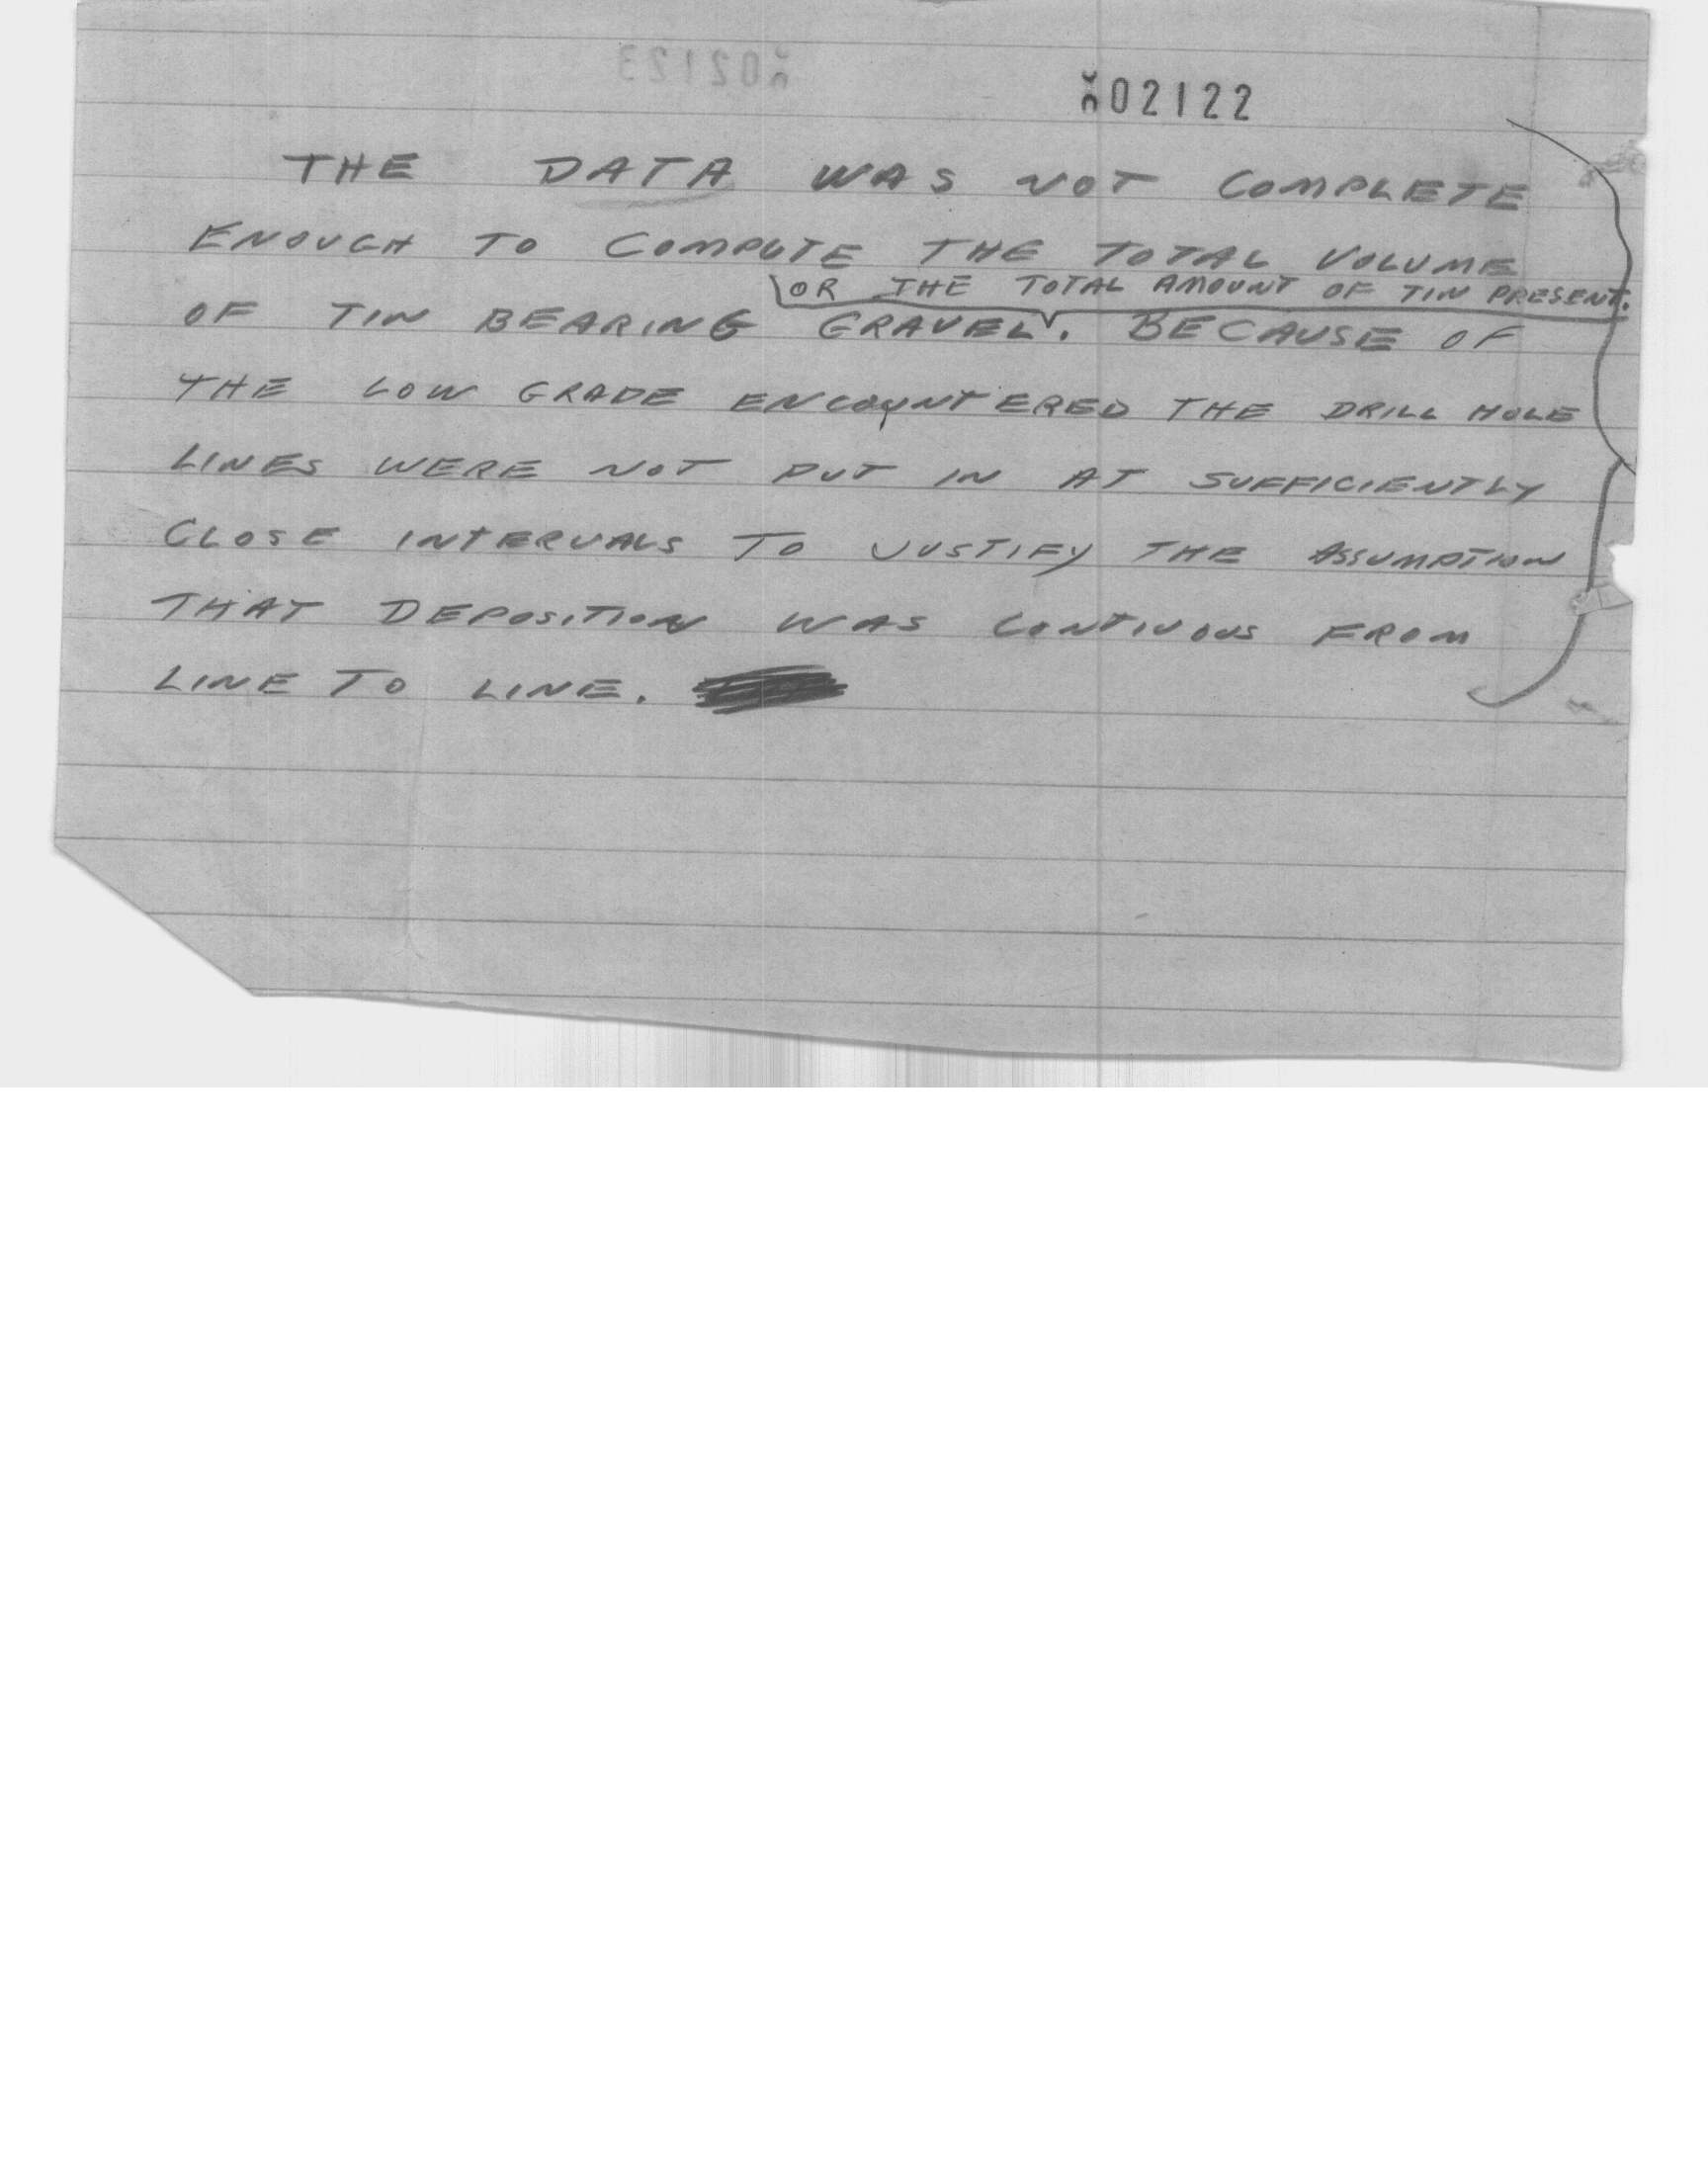 02123
02122
THE DATA WAS NOT COMPLETE
ENOUGH TO COMPUTE THE TOTAL VOLUME
OR THE TOTAL AMOUNT OF TIN PRESENT.
OF TIN BEARING GRAVEL. BECAUSE OF
THE LOW GRADE ENCOUNTERED THE DRILL HOLE
LINES WERE NOT PUT IN AT SUFFICIENTLY
CLOSE INTERVALS TO JUSTIFY THE ASSUMPTION
THAT DEPOSITION WAS CONTIUOUS FROM
LINE TO LINE.